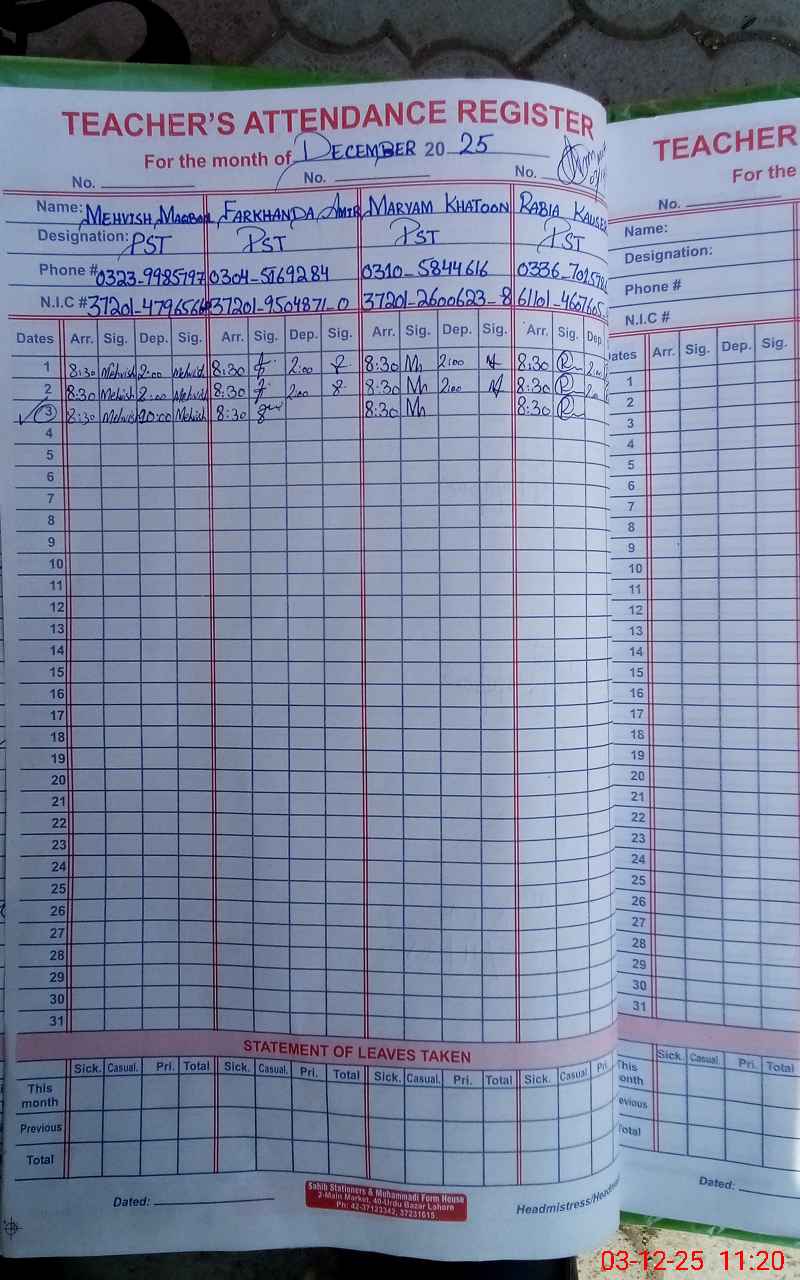 TEACHER'S ATTENDANCE REGISTER
For the month of DECEMBER 2025
No. No. No.
Name: MEHVISH MAQBOOL FARKHANDA AMIR MARYAM KHATOON RABIA KAUSER
Designation: PST PST PST PST
Phone # 0323-9985797 0304-5169284 0310-5844616 0336-
N.I.C # 37201-479656 37201-9504871-0 37201-2600623-8 61101-4667665-
Dates Arr. Sig. Dep. Sig. Arr. Sig. Dep. Sig. Arr. Sig. Dep. Sig. Arr. Sig. Dep.
1 8:30 Mehvish 2:00 Mehvish 8:30 2:00 8:30 M 2:00 8:30 R
2 8:30 Mehvish 2:00 Mehvish 8:30 2:00 8:30 M 2:00 8:30 R
3 8:30 Mehvish 10:00 Mehvish 8:30 8:30 M 8:30 R
4
5
6
7
8
9
10
11
12
13
14
15
16
17
18
19
20
21
22
23
24
25
26
27
28
29
30
31
STATEMENT OF LEAVES TAKEN
Sick. Casual. Pri. Total Sick. Casual. Pri. Total Sick. Casual. Pri. Total Sick. Casual Pri.
This month
Previous
Total
Dated:
Sahib Stationers & Muhammadi Form House
2-Main Market, 40-Urdu Bazar Lahore
Ph: 42-37123342, 37231615
Headmistress/Head
TEACHER
For the
No.
Name:
Designation:
Phone #
N.I.C #
ates Arr. Sig. Dep. Sig.
1
2
3
4
5
6
7
8
9
10
11
12
13
14
15
16
17
18
19
20
21
22
23
24
25
26
27
28
29
30
31
Sick. Casual. Pri. Total
This
onth
evious
Total
Dated:
03-12-25 11:20